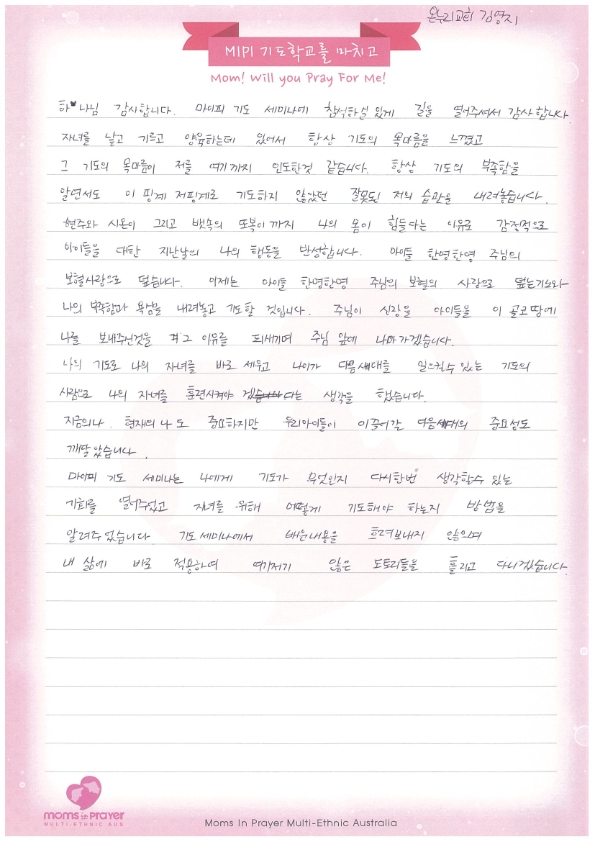 온누리교회 김영지
MIPI 기도학교를 마치고
Mom! Will you Pray For Me!
하나님 감사합니다. 마이피 기도 세미나에 참석하실 있게 길을 열어주셔서 감사합니다.
자녀를 낳고 기르고 양육하는데 있어서 항상 기도의 목마름을 느꼈고
그 기도의 목마름이 저를 여기까지 인도한것 같습니다. 항상 기도의 부족함을
알면서도 이 핑계 저핑계로 기도하지 않았던 잘못된 저의 습관을 내려놓습니다.
현주와 시온이 그리고 뱃속의 또복이까지 나의 몸이 힘들다는 이유로 감정적으로
아이들을 대한 지난날의 나의 행동을 반성합니다. 아이들 한명한명 주님의
보혈사랑으로 덮습니다. 이제는 아이들 한명한명 주님의 보혈의 사랑으로
나의 부족함과 욕심을 내려놓고 기도할 것입니다. 주님이 신랑을 아이들을 이 골코땅에
나를 보내주신것을 그 이유를 주님 앞에 나아가겠습니다.
나의 기도로 나의 자녀를 바로 세우고 나아가 다음세대를 일으킬수 있는 기도의
사람으로 나의 자녀를 훈련시켜야 겠다는 생각을 했습니다.
지금의 나. 현재의 나 도 중요하지만 우리아이들이 이끌어갈 다음세대의 중요성도
깨달았습니다.
마이피 기도 세미나는 나에게 기도가 무엇인지 다시한번 생각할수 있는
기회를 열어주었고 자녀를 위해 어떻게 기도해야 하는지 방법을
알려주었습니다. 기도세미나에서 배운내용을 흘려보내지 않으며
내 삶에 바로 적용하며 여기저기 많은 도토리들을 흘리고 다니겠습니다.
moms in prayer
MULTI-ETHNIC AUS
Moms In Prayer Multi-Ethnic Australia